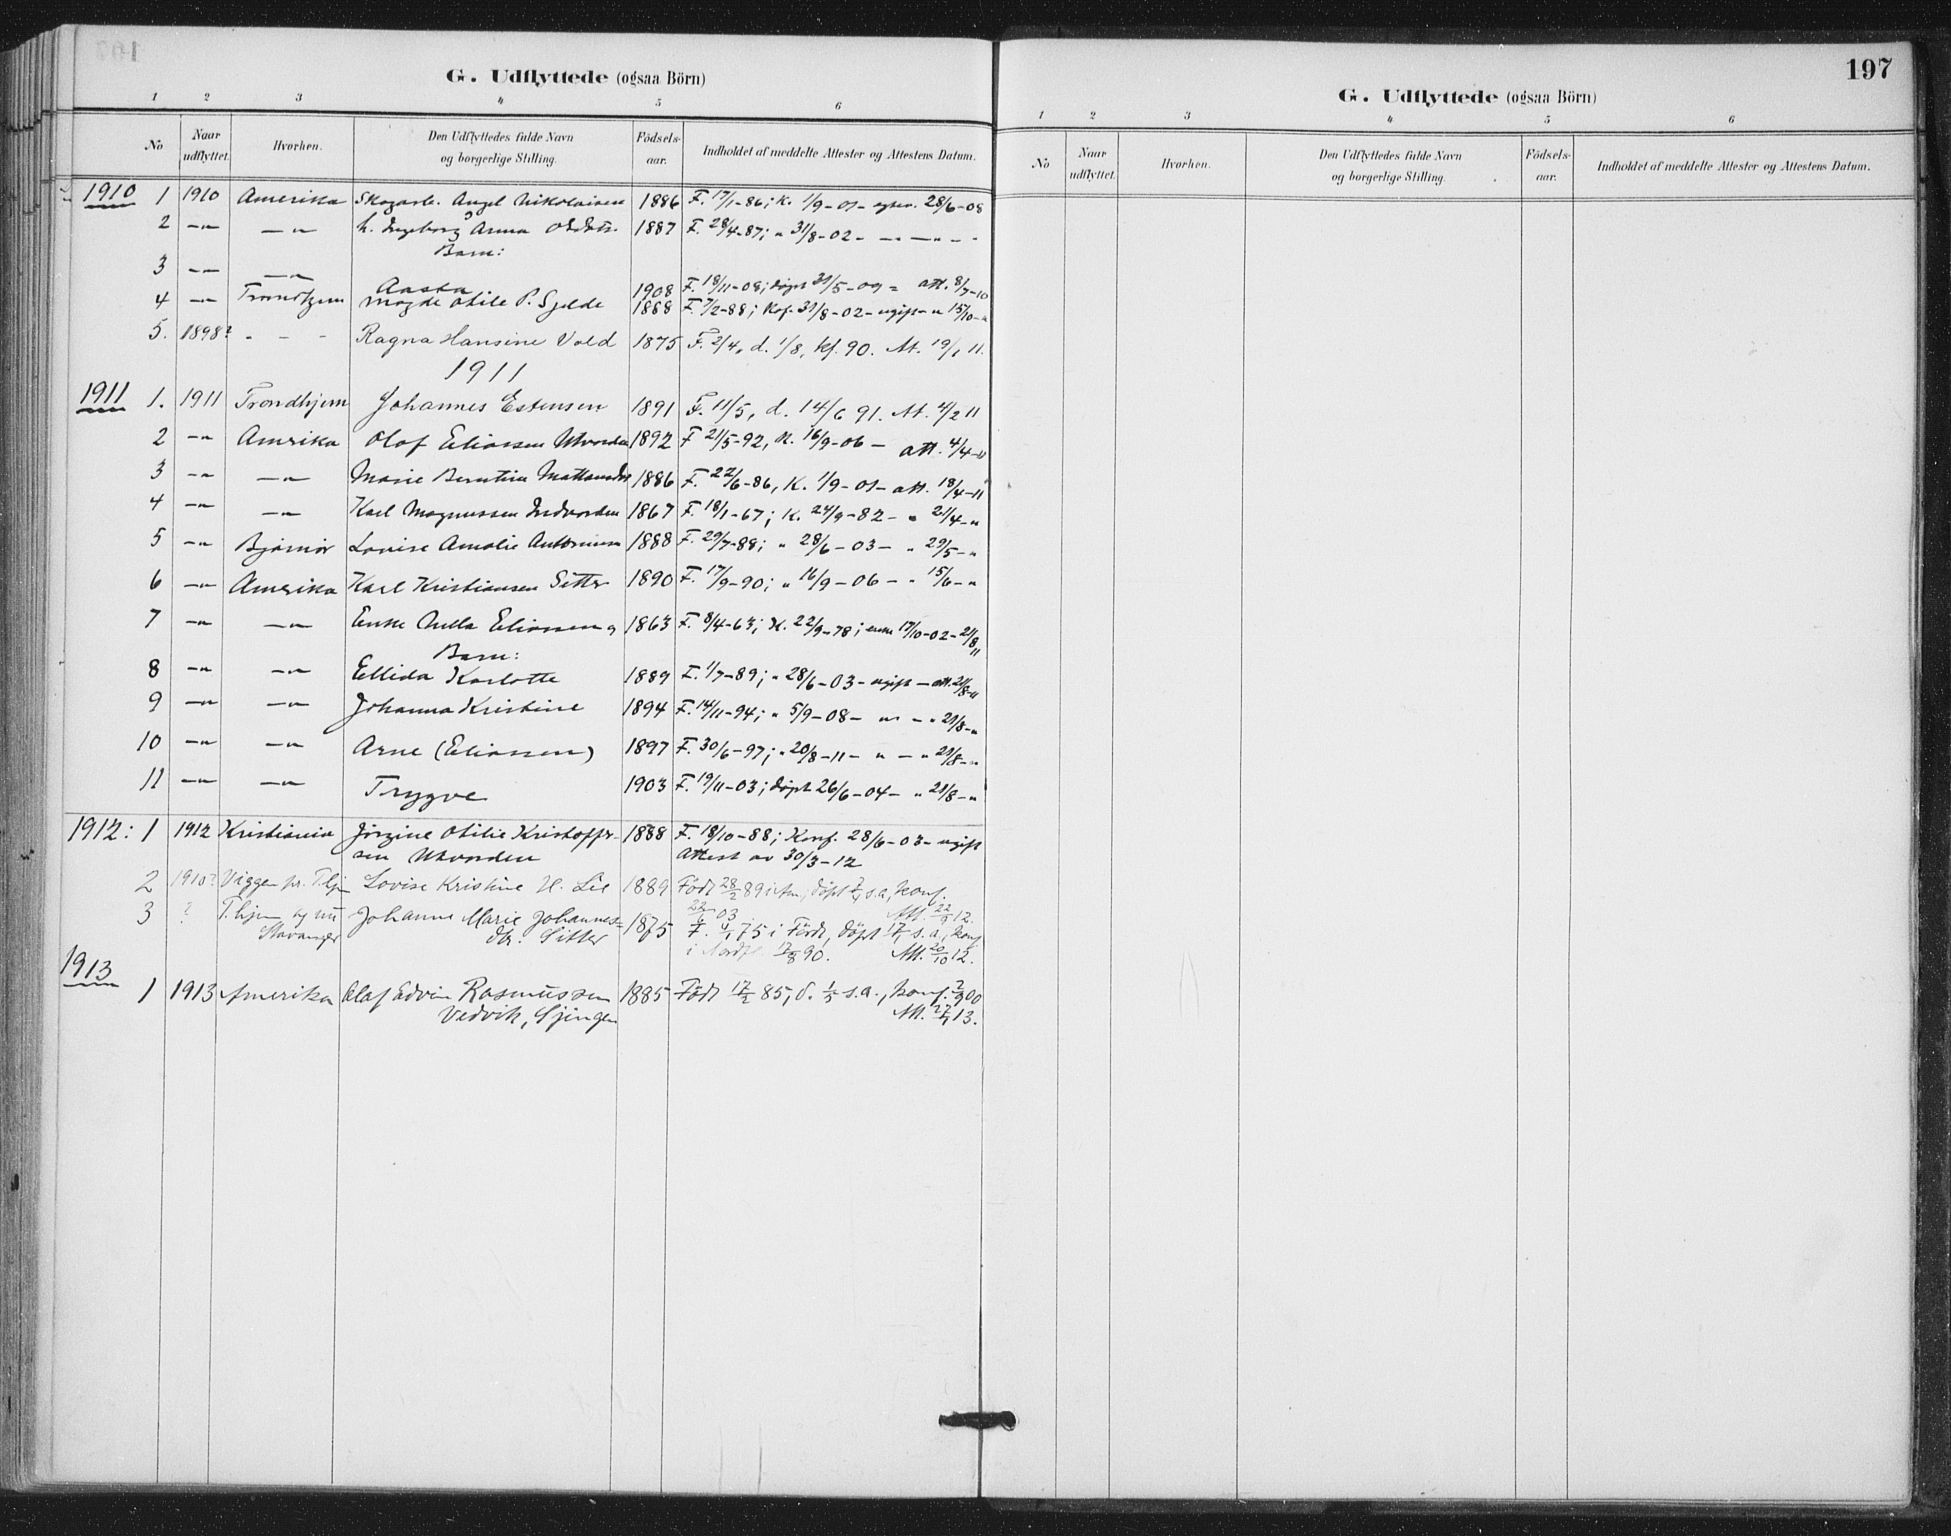 G. Udflyttede (ogsaa Börn)
1 2 3 4 5 6
No Naar udflyttet. Hvorhen. Den Udflyttedes fulde Navn og borgerlige Stilling. Födsels-aar. Indholdet af meddelte Attester og Attestens Datum.
1910 1 1910 Amerika Skogarb. Angel Nikolaisen 1886 F. 17/1-86; K. 1/9-01- 28/6-08
2 -"- -"- h. Ingeborg Anna 1887 F. 28/4-87; " 31/8-02-
Barn:
3 -"- -"- Aasta 1908 F. 18/11-08; döpt 31/5-09 = att. 8/7-10
4 -"- Trondhjem Magde Otilie P. Sjelde 1888 F. 7/2-88; Kof. 31/8-02- ugift - " 15/10-"
5. 1898? - - - Ragna Hansine Vold 1875 F. 2/4, d. 1/8, kf. 90. At. 19/1 11.
1911
1911 1. 1911 Trondhjem Johannes Estensen 1891 F. 11/5, d. 14/6 91. At. 4/2 11
2 -"- Amerika Olaf Eliassen Utvorden 1892 F 21/5-92, K. 16/9-06- att. 4/4-11
3 -"- -"- Marie Berntine 1886 F. 22/6-86, K. 1/9-01- att. 18/4-11
4 -"- -"- Karl Magnussen Indvorden 1867 F. 18/1-67; K. 24/9-82- " 21/4-"
5 -"- Bjørnør Lovise Amalie Antonsen 1888 F. 29/7-88; " 28/6-03- " 29/5-"
6 -"- Amerika Karl Kristiansen Sitter 1890 F. 17/9-90; " 16/9-06- " 15/6-"
7 -"- -"- Enke Nella Eliassen 1863 F. 8/4-63; K. 22/9-78; enke 17/10-02- 21/8 11
Barn:
8 -"- -"- Ellida Karlotte 1889 F. 1/7-89; " 28/6-03- ugift - att. 21/8-11
9 -"- -"- Johanna Kristine 1894 F. 14/11-94; " 5/9-08- " - " 21/8-"
10 -"- -"- Arne (Eliassen) 1897 F. 30/6-97; " 20/8-11- " - " 21/8-"
11 -"- -"- Trygve 1903 F. 19/11-03; döpt 26/6-04- " 21/8-"
1912: 1 1912 Kristiania Jörgine Otilie Kristoffer- 1888 F. 18/10-88; Konf. 28/6-03- ugift
sen Utvorden Attest av 30/3-12
2 1910? Viggen pr. T.hjm Lovise Kristine H. Lie 1889 Födt 28/2 89 i , döpt s.a, konf.
22/6 03 Att. 22/9 12.
3 ? T.hjem og nu Johanne Marie Johannes= 1875 F. 75 i , döpt s.a., konf
Stavanger dtr. Sitter i 17/8 90. Att. 20/10 12.
1913
1 1913 Amerika Olaf Edvin Rasmussen 1885 Födt 17/2 85, d. 1/5 s.a., konf. 2/9 00
Vedvik, Sjingen Att. 13.
197
G. Udflyttede (ogsaa Börn)
1 2 3 4 5 6
No Naar udflyttet. Hvorhen. Den Udflyttedes fulde Navn og borgerlige Stilling. Födsels-aar. Indholdet af meddelte Attester og Attestens Datum.